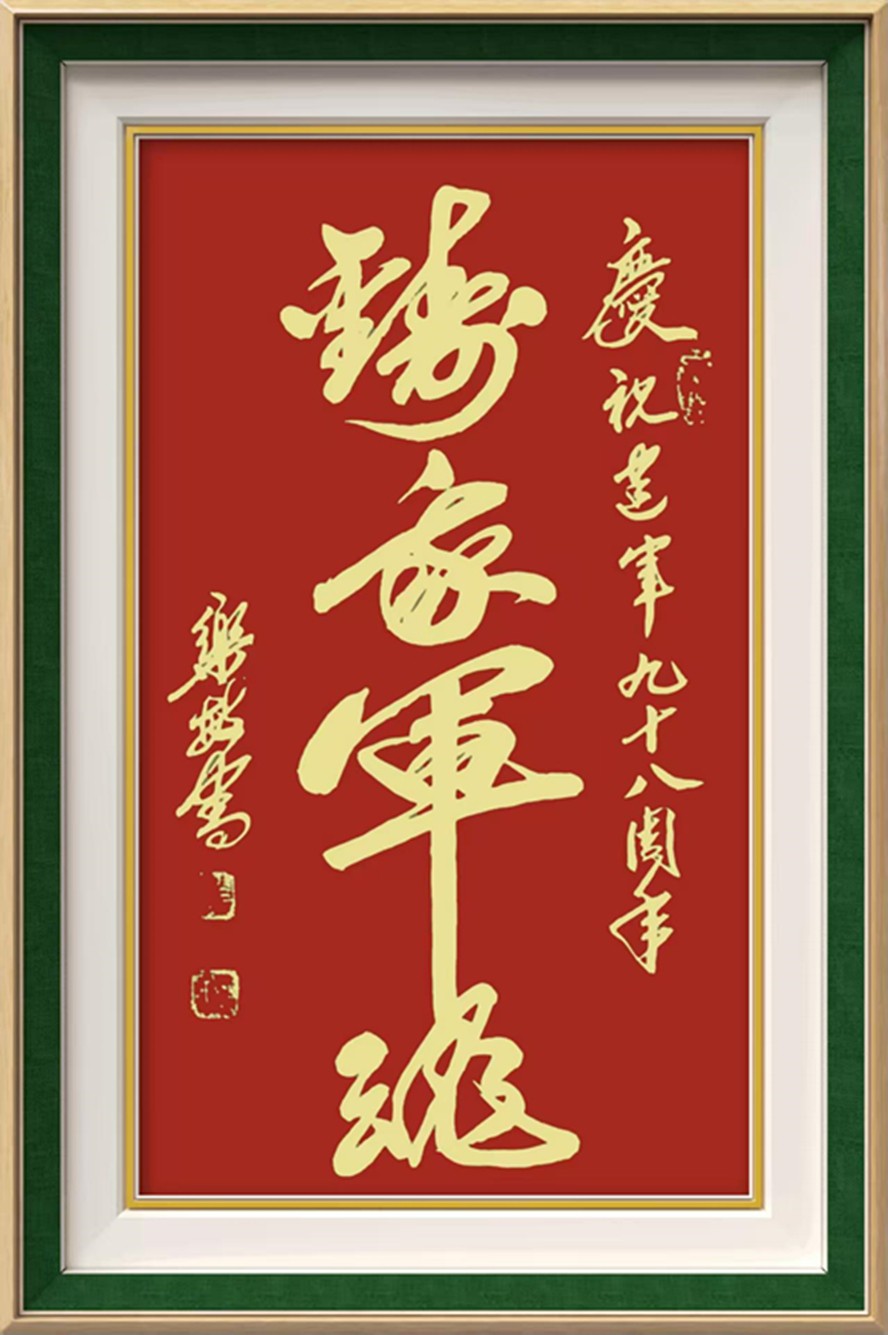 慶祝建軍九十八周年
鑄我軍魂
書